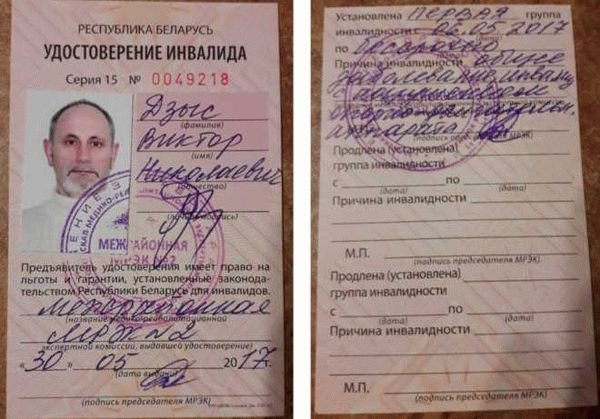 РЕСПУБЛИКА БЕЛАРУСЬ
УДОСТОВЕРЕНИЕ ИНВАЛИДА
Серия 15 № 0049218
Дзыс
(фамилия)
Виктор
(имя)
Николаевич
(отчество)
(личная подпись)
МЕЖРАЙОННАЯ
МРЭК №2
Предъявитель удостоверения имеет право на
льготы и гарантии, установленные законода-
тельством Республики Беларусь для инвалидов.
Межрайонная
(название медико-реабилитационной
МРЭК №2
экспертной комиссии, выдавшей удостоверение)
«30» 05 2017 г.
(дата выдачи)
(подпись председателя МРЭК)
Установлена первая группа
инвалидности с 06.05.2017
по бессрочно
Причина инвалидности общее
заболевание, инвалид
с
опорно-двигат.
аппарата
(подпись председателя МРЭК)
Продлена (установлена)
группа инвалидности
с по
(дата) (дата)
Причина инвалидности
М.П.
(подпись председателя МРЭК)
Продлена (установлена)
группа инвалидности
с по
(дата) (дата)
Причина инвалидности
М.П.
(подпись председателя МРЭК)